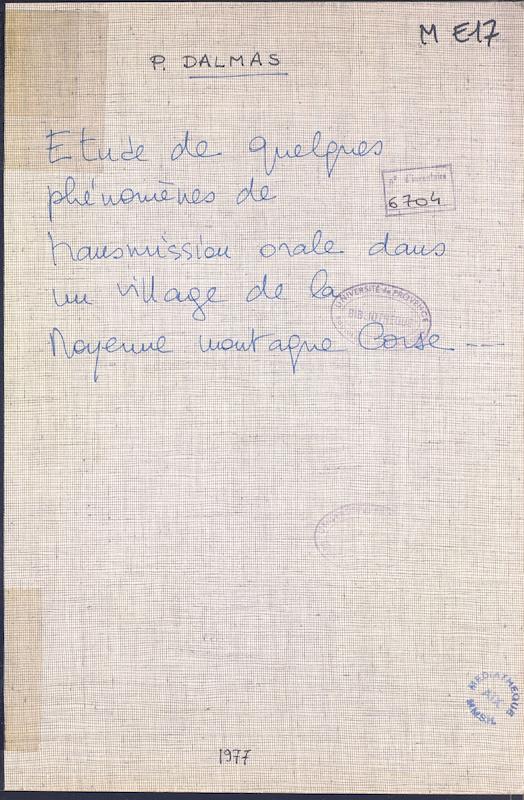 M E17
P. DALMAS
Etude de quelques
phénomènes de
n° d'inventaire
6704
transmission orale dans
un village de la
UNIVERSITÉ de PROVENCE
BIBLIOTHÈQUE
Moyenne montagne Corse ---
MEDIATHEQUE
AIX
MMSH
1977